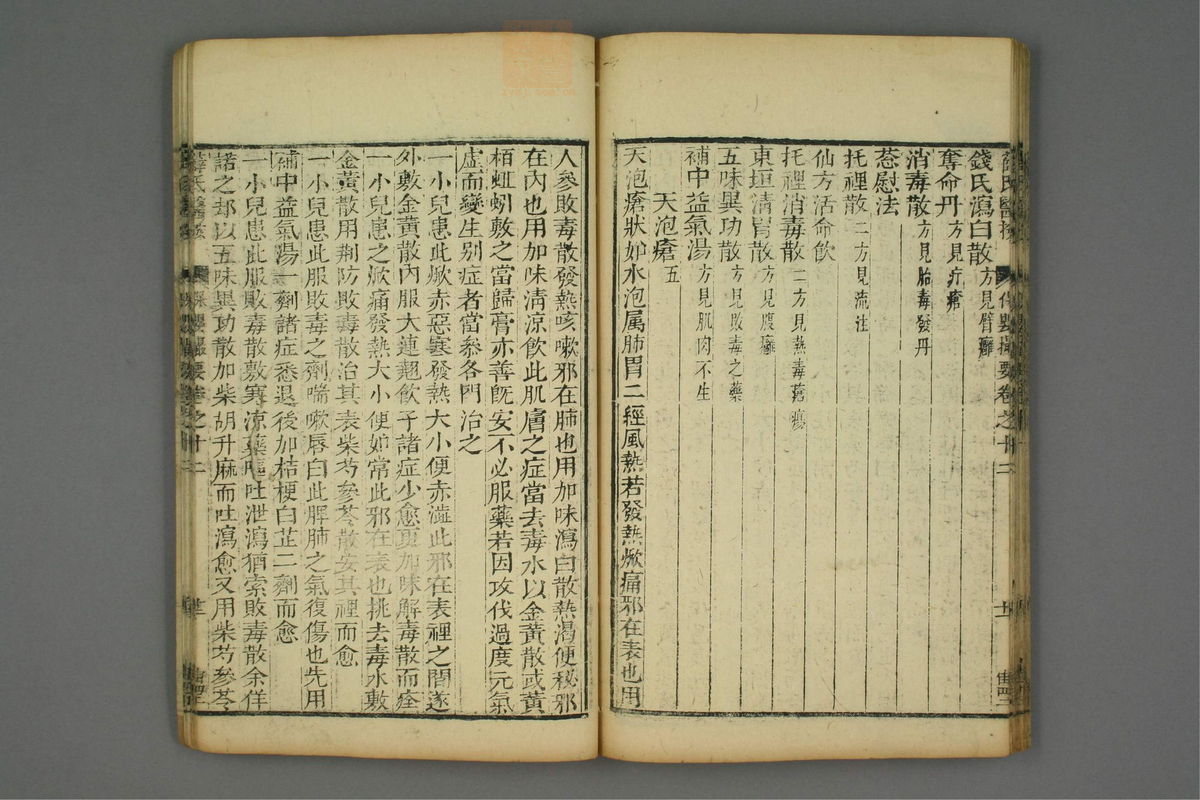 錢氏瀉白散方見臂癰
奪命丹方見疔瘡
消毒散方見胎毒發丹
葱慰法
托裡散二方見流注
仙方活命飲
托裡消毒散二方見熱毒瘡瘍
東垣清胃散方見腹癰
五味異功散方見敗毒之藥
補中益氣湯方見肌肉不生
天泡瘡五
天泡瘡狀如水泡属肺胃二經風熱若發熱焮痛邪在表也用
人參敗毒散發熱咳嗽邪在肺也用加味瀉白散熱渴便秘邪
在內也用加味清涼飲此肌膚之症當去毒水以金黃散或黃
栢蚯蚓敷之當歸膏亦善旣安不必服藥若因攻伐過度元氣
虛而變生别症者當叅各門治之
一小兒患此焮赤惡寒發熱大小便赤澁此邪在表裡之間遂
外敷金黃散內服大連翹飲子諸症少愈更加味解毒散而痊
一小兒患之焮痛發熱大小便如常此邪在表也挑去毒水敷
金黃散用荆防敗毒散治其表柴芍參苓散安其裡而愈
一小兒患此服敗毒之劑喘嗽唇白此脾肺之氣復傷也先用
補中益氣湯一劑諸症悉退後加桔梗白芷二劑而愈
一小兒患此服敗毒散敷寒涼藥嘔吐泄瀉猶索敗毒散余佯
諾之却以五味異功散加柴胡升麻而吐瀉愈又用柴芍參苓
薛氏醫按
保嬰撮要卷之十二